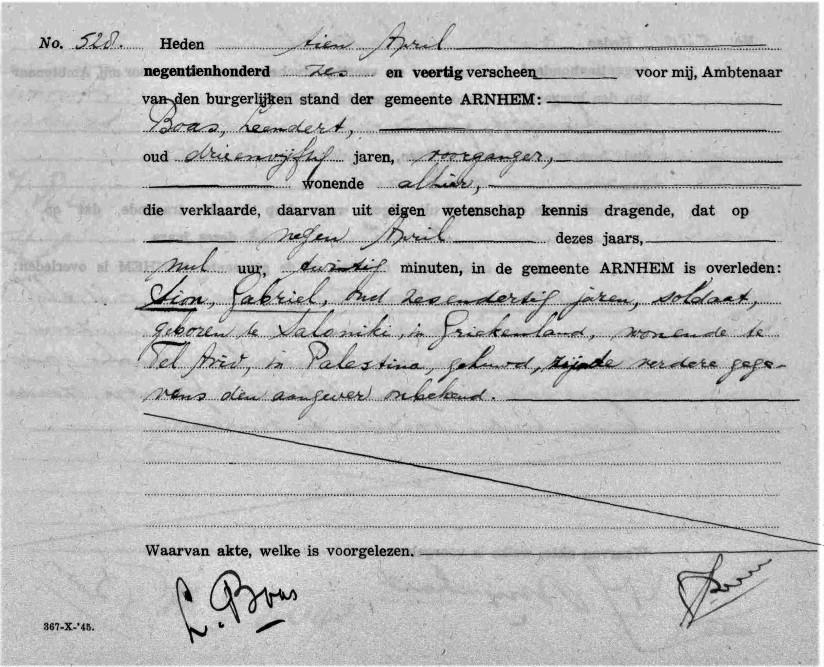 No. 528. Heden tien April
negentienhonderd zes en veertig verscheen voor mij, Ambtenaar
van den burgerlijken stand der gemeente ARNHEM:
Boas, Leendert,
oud drieenvijftig jaren, voorganger,
wonende alhier,
die verklaarde, daarvan uit eigen wetenschap kennis dragende, dat op
negen April dezes jaars,
nul uur, twintig minuten, in de gemeente ARNHEM is overleden:
Sion, Gabriel, oud zesendertig jaren, soldaat,
geboren te Saloniki, in Griekenland, wonende te
Tel Aviv, in Palestina, gehuwd, zijnde verdere gege-
vens den aangever onbekend.
Waarvan akte, welke is voorgelezen.
L. Boas
367-X-'45.